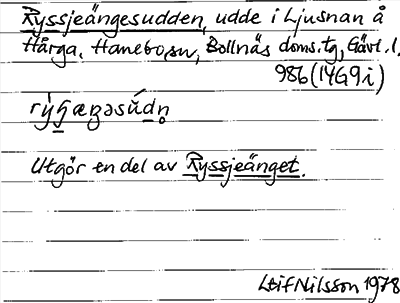 Ryssjeängesudden, udde i Ljusnan å
Hårga. Hanebo sn, Bollnäs doms. tg, Gävl. l.
986 (14G9i)
Utgör en del av Ryssjeänget.
Leif Nilsson 1978